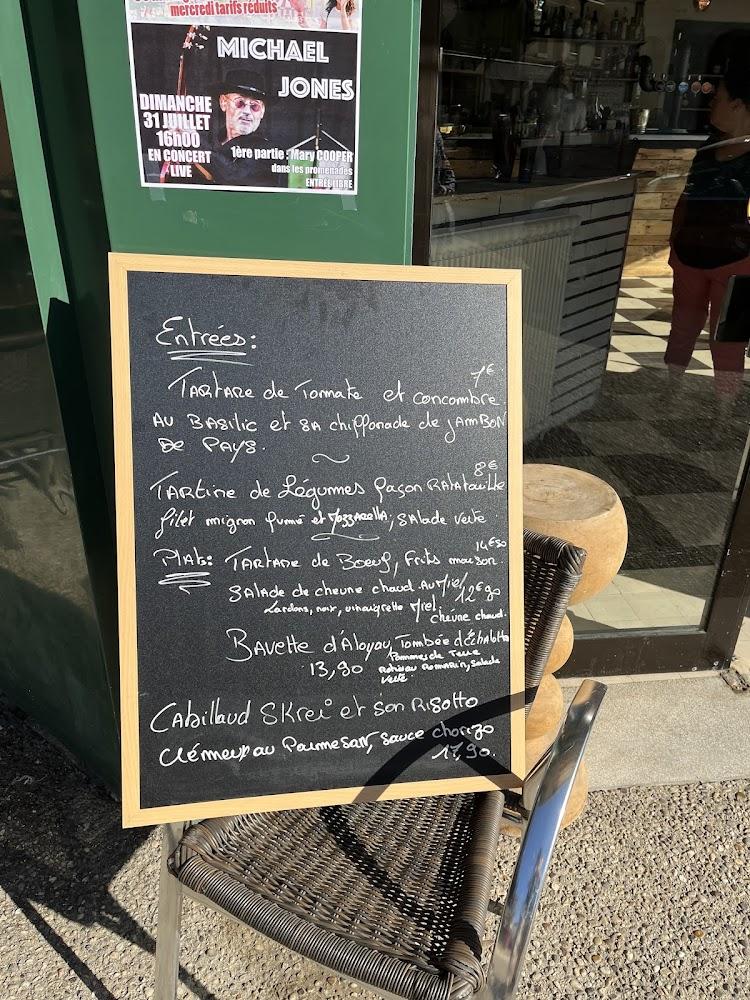 mercredi tarifs réduits
MICHAEL
JONES
DIMANCHE
31 JUILLET
16h00
EN CONCERT
LIVE
1ère partie : Mary COOPER
dans les promenades
ENTREE LIBRE
Entrées:
7€
TARTARE de Tomate et concombre
AU BASILIC et SA chiffonade de JAMBON
De PAYS.
8€
TARTine de Légumes façon RATATOUille
filet mignon fumé et MOZZARELLA, SALADE Verte
14€50
PLATS: TARTARE de BOEUF, Frits maison
SALADE de chevre chaud Au Miel 12€90
Lardons, noix, vinaigrette Miel, chévre chaud.
BAVETTE d'Aloyau, Tombée d'Échalotte
13,90 Pommes de Terre
Roties au ROMARIN, Salade
Verte.
CABillaud SKrei et Son RISOTTO
Clémeux au PARMESAN, SAUCE chorizo
17,90.